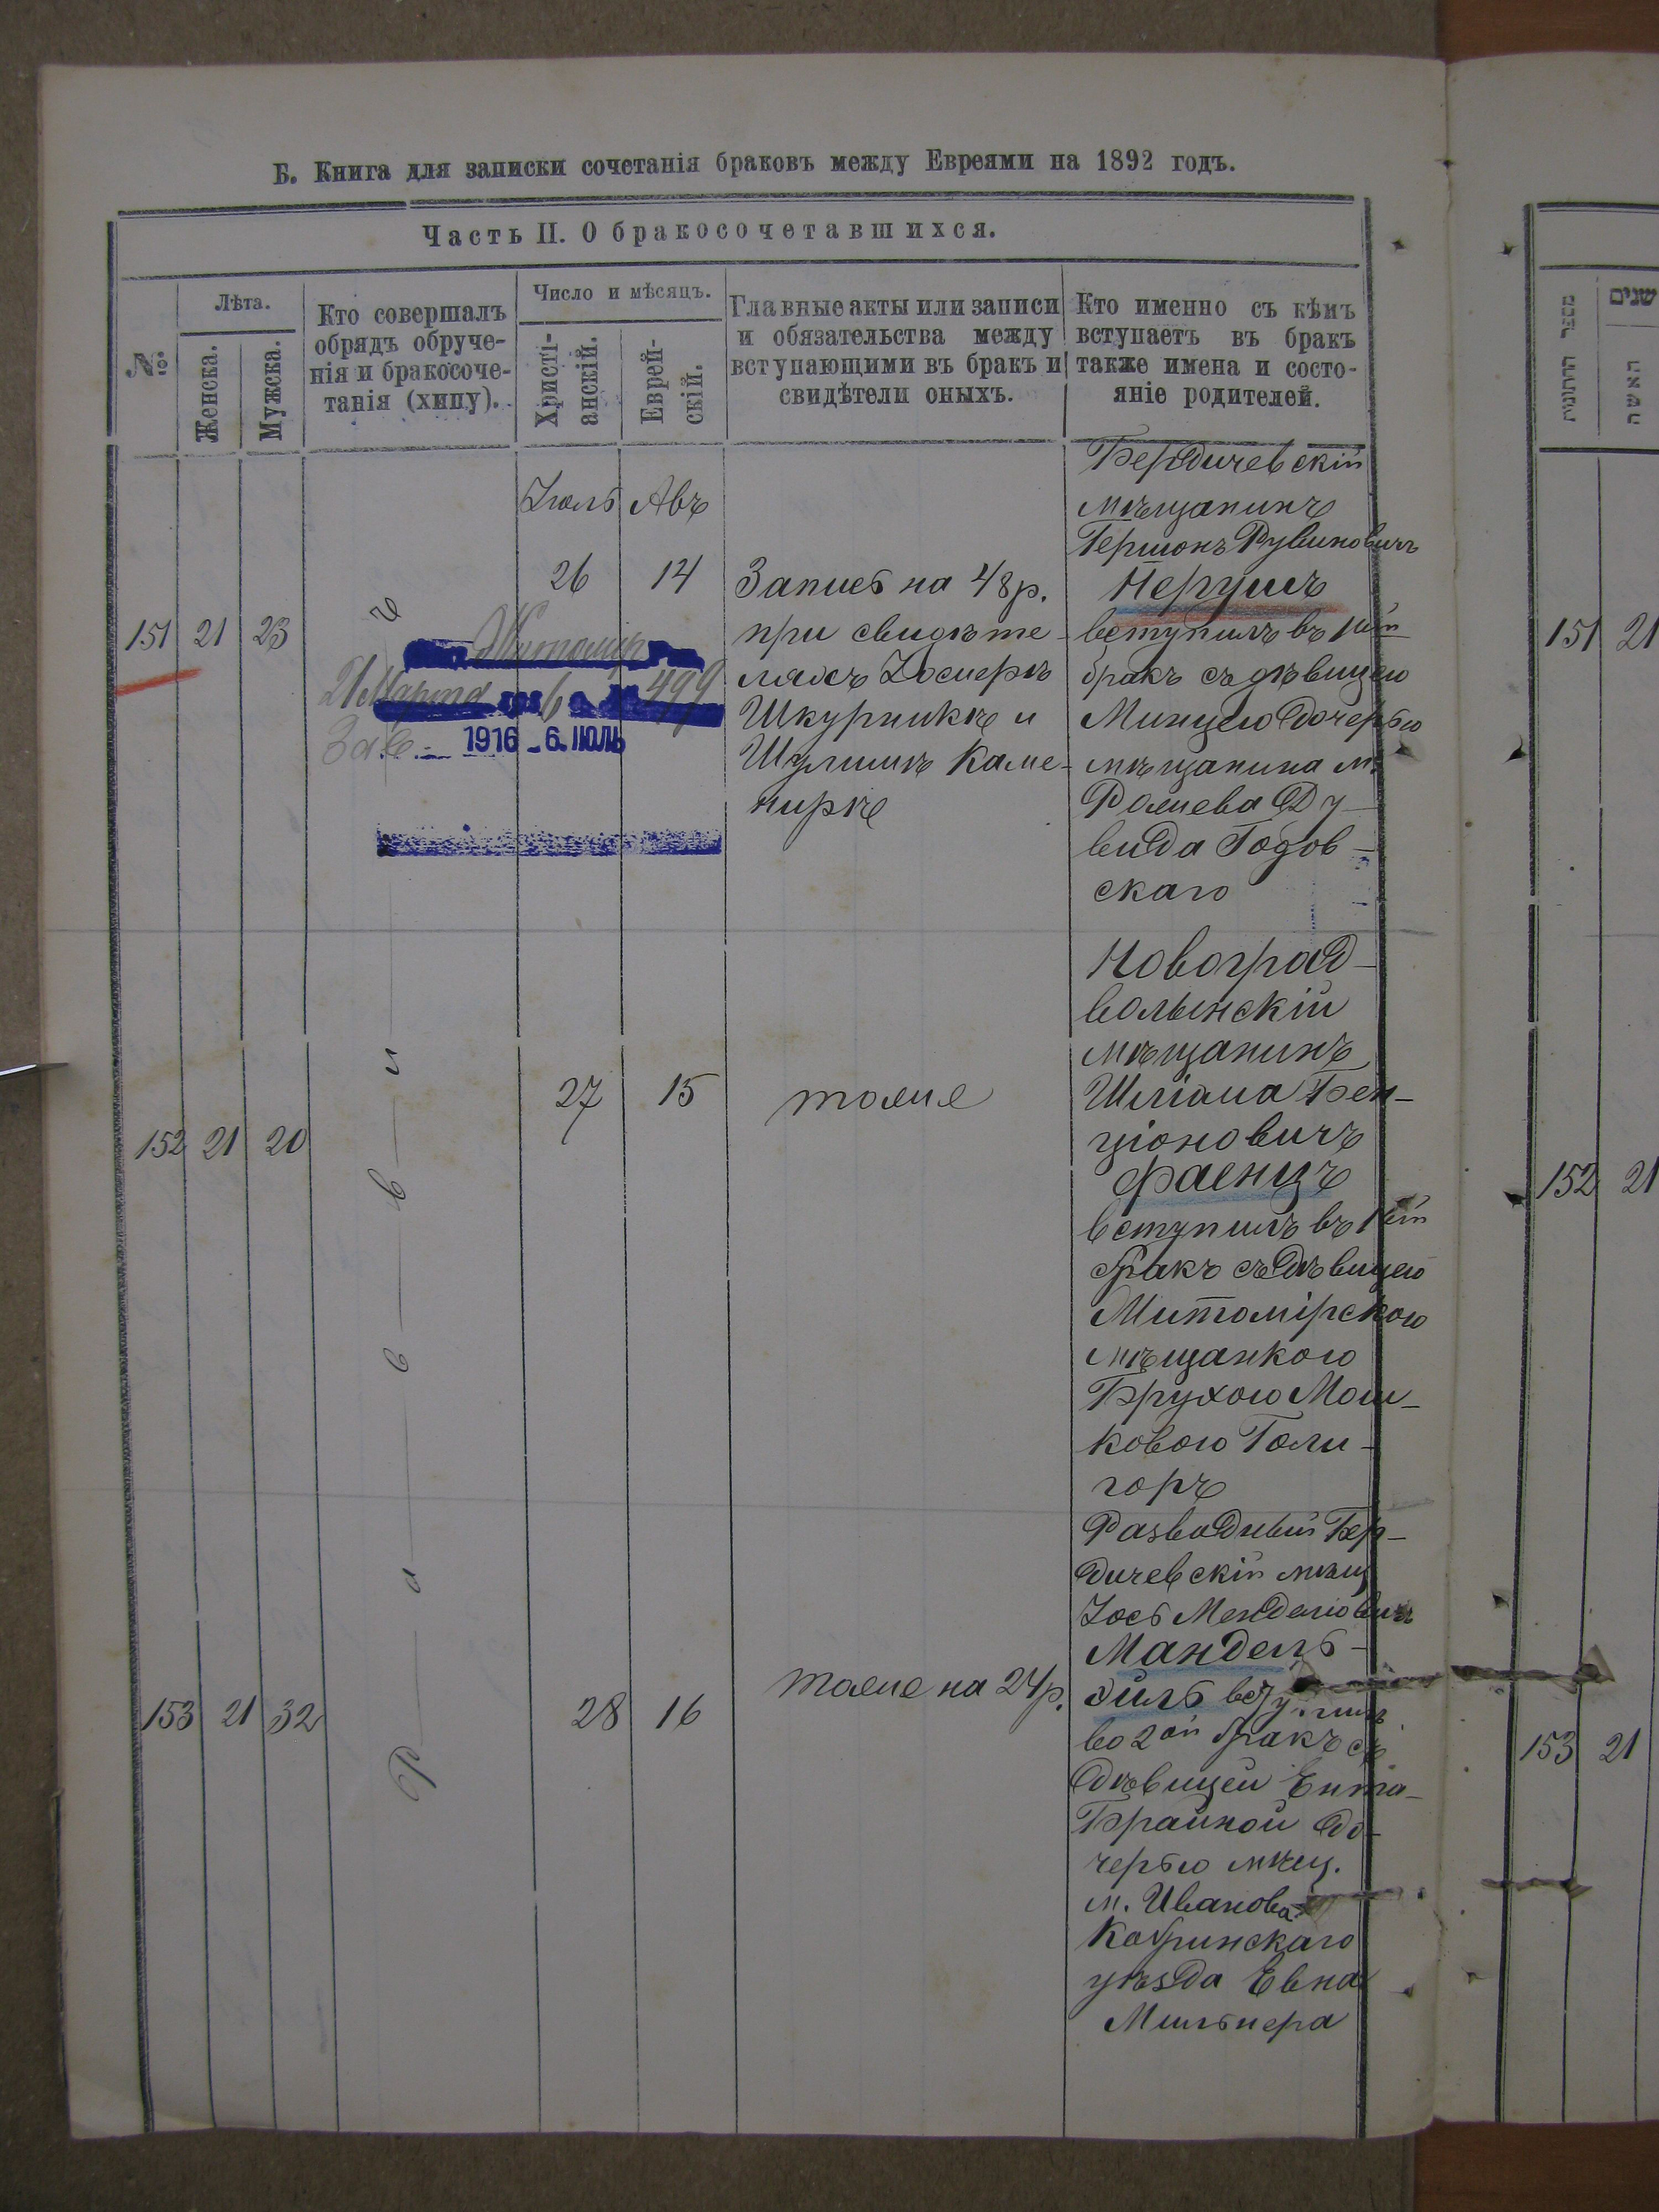 Б. Книга для записки сочетанія браковъ между Евреями на 1892 годъ.
Часть II. О бракосочетавшихся.
№.
Лѣта.
Женска.
Мужска.
Кто совершалъ
обрядъ обруче-
нія и бракосоче-
танія (хипу).
Число и мѣсяцъ.
Христі-
анскій.
Еврей-
скій.
Главные акты или записи
и обязательства между
вступающими въ бракъ и
свидѣтели оныхъ.
Кто именно съ кѣмъ
вступаетъ въ бракъ
также имена и состо-
яніе родителей.
151 21 23
Житомір
21 Марта 6 499
1916 - 6. ІЮЛЬ
Іюль Авъ
26 14
Запись на 48 р.
при свидѣте-
ляхъ
Шкурникѣ и
Шулимѣ Каме-
нирѣ
Бердичевскій
мѣщанинъ
Гершонъ Рувиновичъ
Перушъ
вступилъ въ 1ый
бракъ съ дѣвицею
Минцею дочерью
мѣщанина м.
Ду-
вида
скаго
152 21 20
27 15
тоже
Новоград-
волынскій
мѣщанинъ
Шліома Бен-
ціоновичъ
Фаенцъ
вступилъ въ 1ый
бракъ съ дѣвицею
Житомірскою
мѣщанкою
Брухою Мош-
ковою Голи-
горъ
153 21 32
28 16
тоже на 24 р.
Разводный Бер-
дичевскій мѣщ
Іось Менделіовичъ
Мандель-
зиль вступилъ
во 2ой бракъ съ
дѣвицей Ента-
Брайной до-
черью мѣщ.
м. Иванова
Кобринскаго
уѣзда Евна
Мильнера
Р — а — в — в — и — ъ
מספר החתונות
שנים
האשה
151 21
152 21
153 21